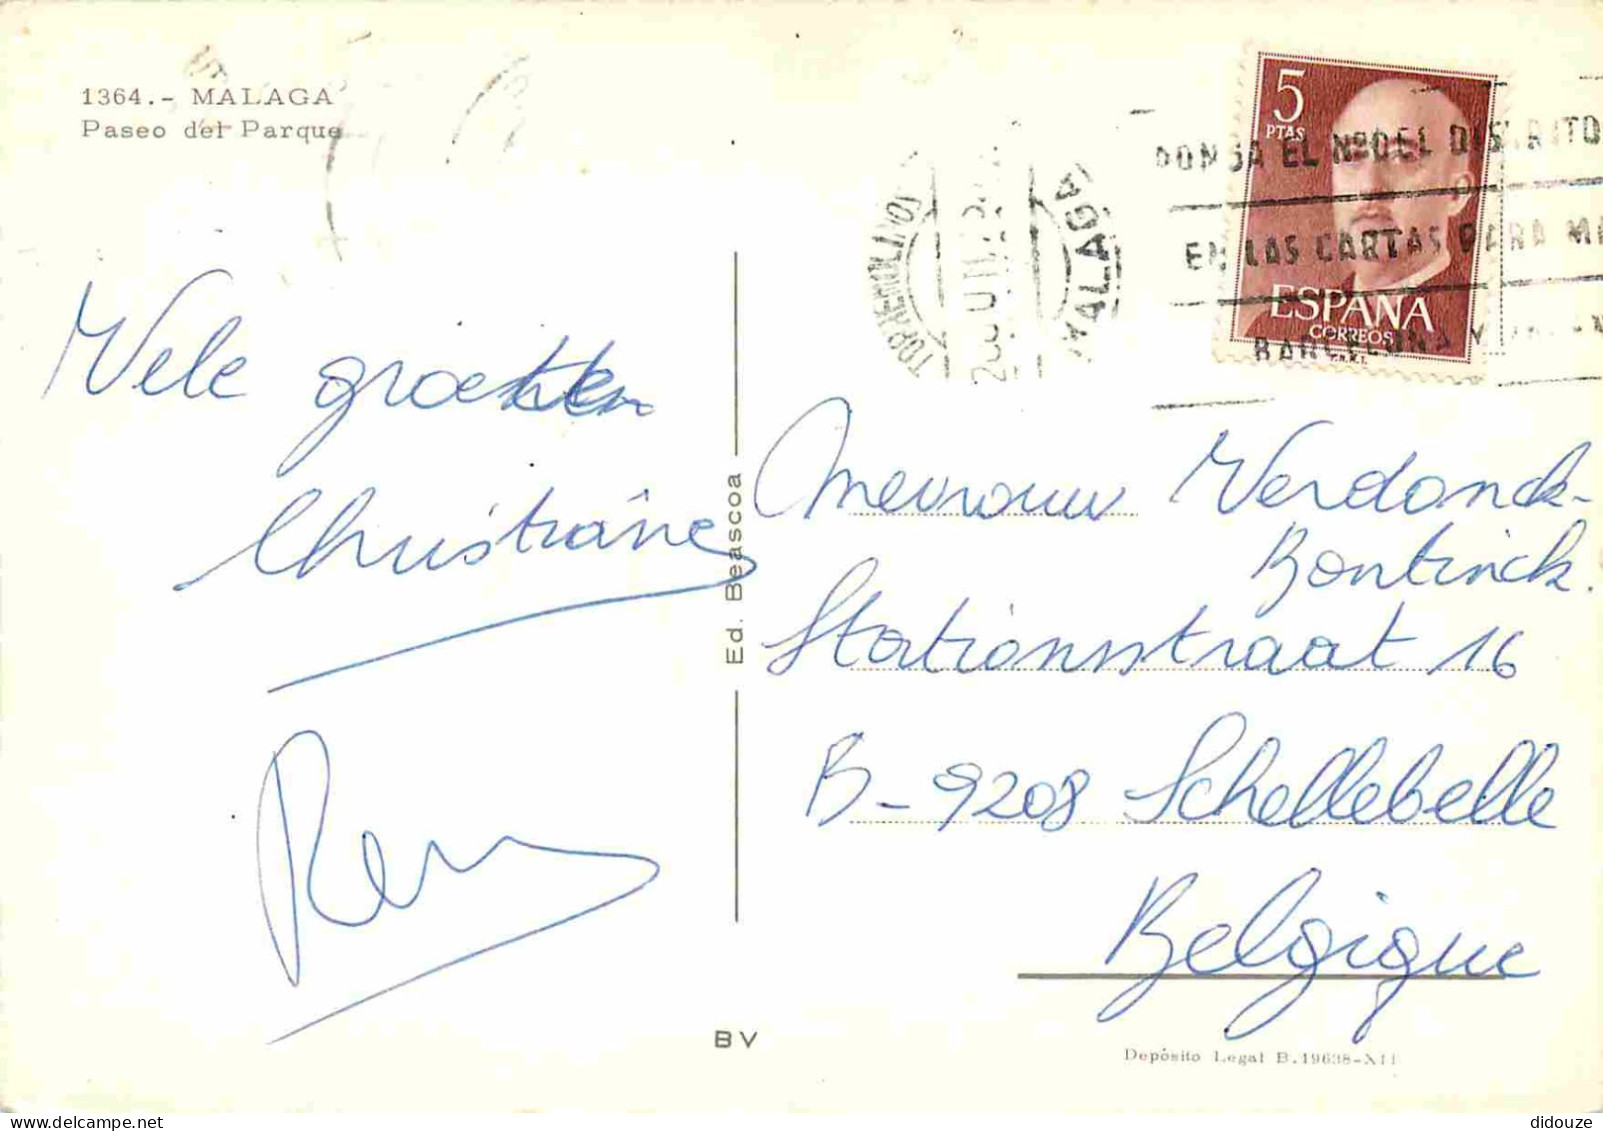 1364.- MALAGA
Paseo del Parque
Vele groeten
Christiane
Ed. Beascoa
BV
5
PTAS
ESPAÑA
CORREOS
TORREMOLINOS
MALAGA
PONGA EL Nº DEL DISTRITO
EN LAS CARTAS PARA MA
BARCELONA Y
Mevrouw Verdonck-
Bontinck.
Stationsstraat 16
B-9208 Schellebelle
Belgique
Depósito Legal B.19638-XII
didouze